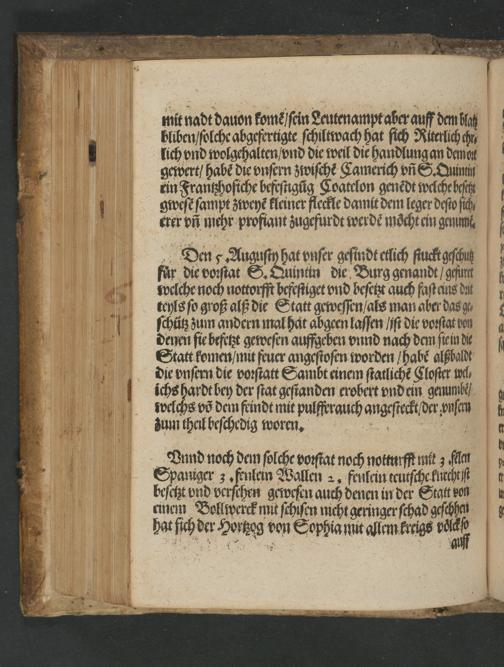 mit nadt dauon komē/sein Leutenampt aber auff dem blatz
bliben/solche abgefertigte schiltwach hat sich Riterlich ehr⸗
lich vnd wolgehalten/vnd die weil die handlung an dem ort
gewert/habē die vnsern zwischē Camerich vñ S. Quintin
ein Frantzhosische befestigūg Coatelon genēdt welche besetzt
gwesē sampt zweyē kleiner fleckle damit dem leger desto sich⸗
erer vñ mehr profiant zugefurdt werdē möcht ein genumē.
Den 5. Augusty hat vnser gesindt etlich stuckt geschutz
für die vorstat S. Quintin die Burg genandt/gefuret
welche noch nottorfft befestiget vnd besetzt auch fast eins drit
teyls so groß alß die Statt gewessen/als man aber das ge⸗
schütz zum andern mal hat abgeen lassen/ist die vorstat von
denen sie besetzt gewesen auffgeben vnnd nach dem sie in die
Statt komen/mit feuer angestosen worden/habē alßbaldt
die vnsern die vorstatt Sambt einem statlichē Closter wel⸗
ichs hardt bey der stat gestanden erobert vnd ein genumbē/
welchs vō dem feindt mit pulfferauch angesteckt/der vnsern
zum theil beschedig woren.
Vnnd noch dem solche vorstat noch notturfft mit 3. fēlen
Spaniger 3. fenlein Wallen 2. fenlein teutsche knecht ist
besetzt vnd versehen gewesen auch denen in der Statt von
einem Bollwerck mit schisen nicht geringer schad geschhen
hat sich der Hortzog von Sophia mit allem kreigs völck so
auff